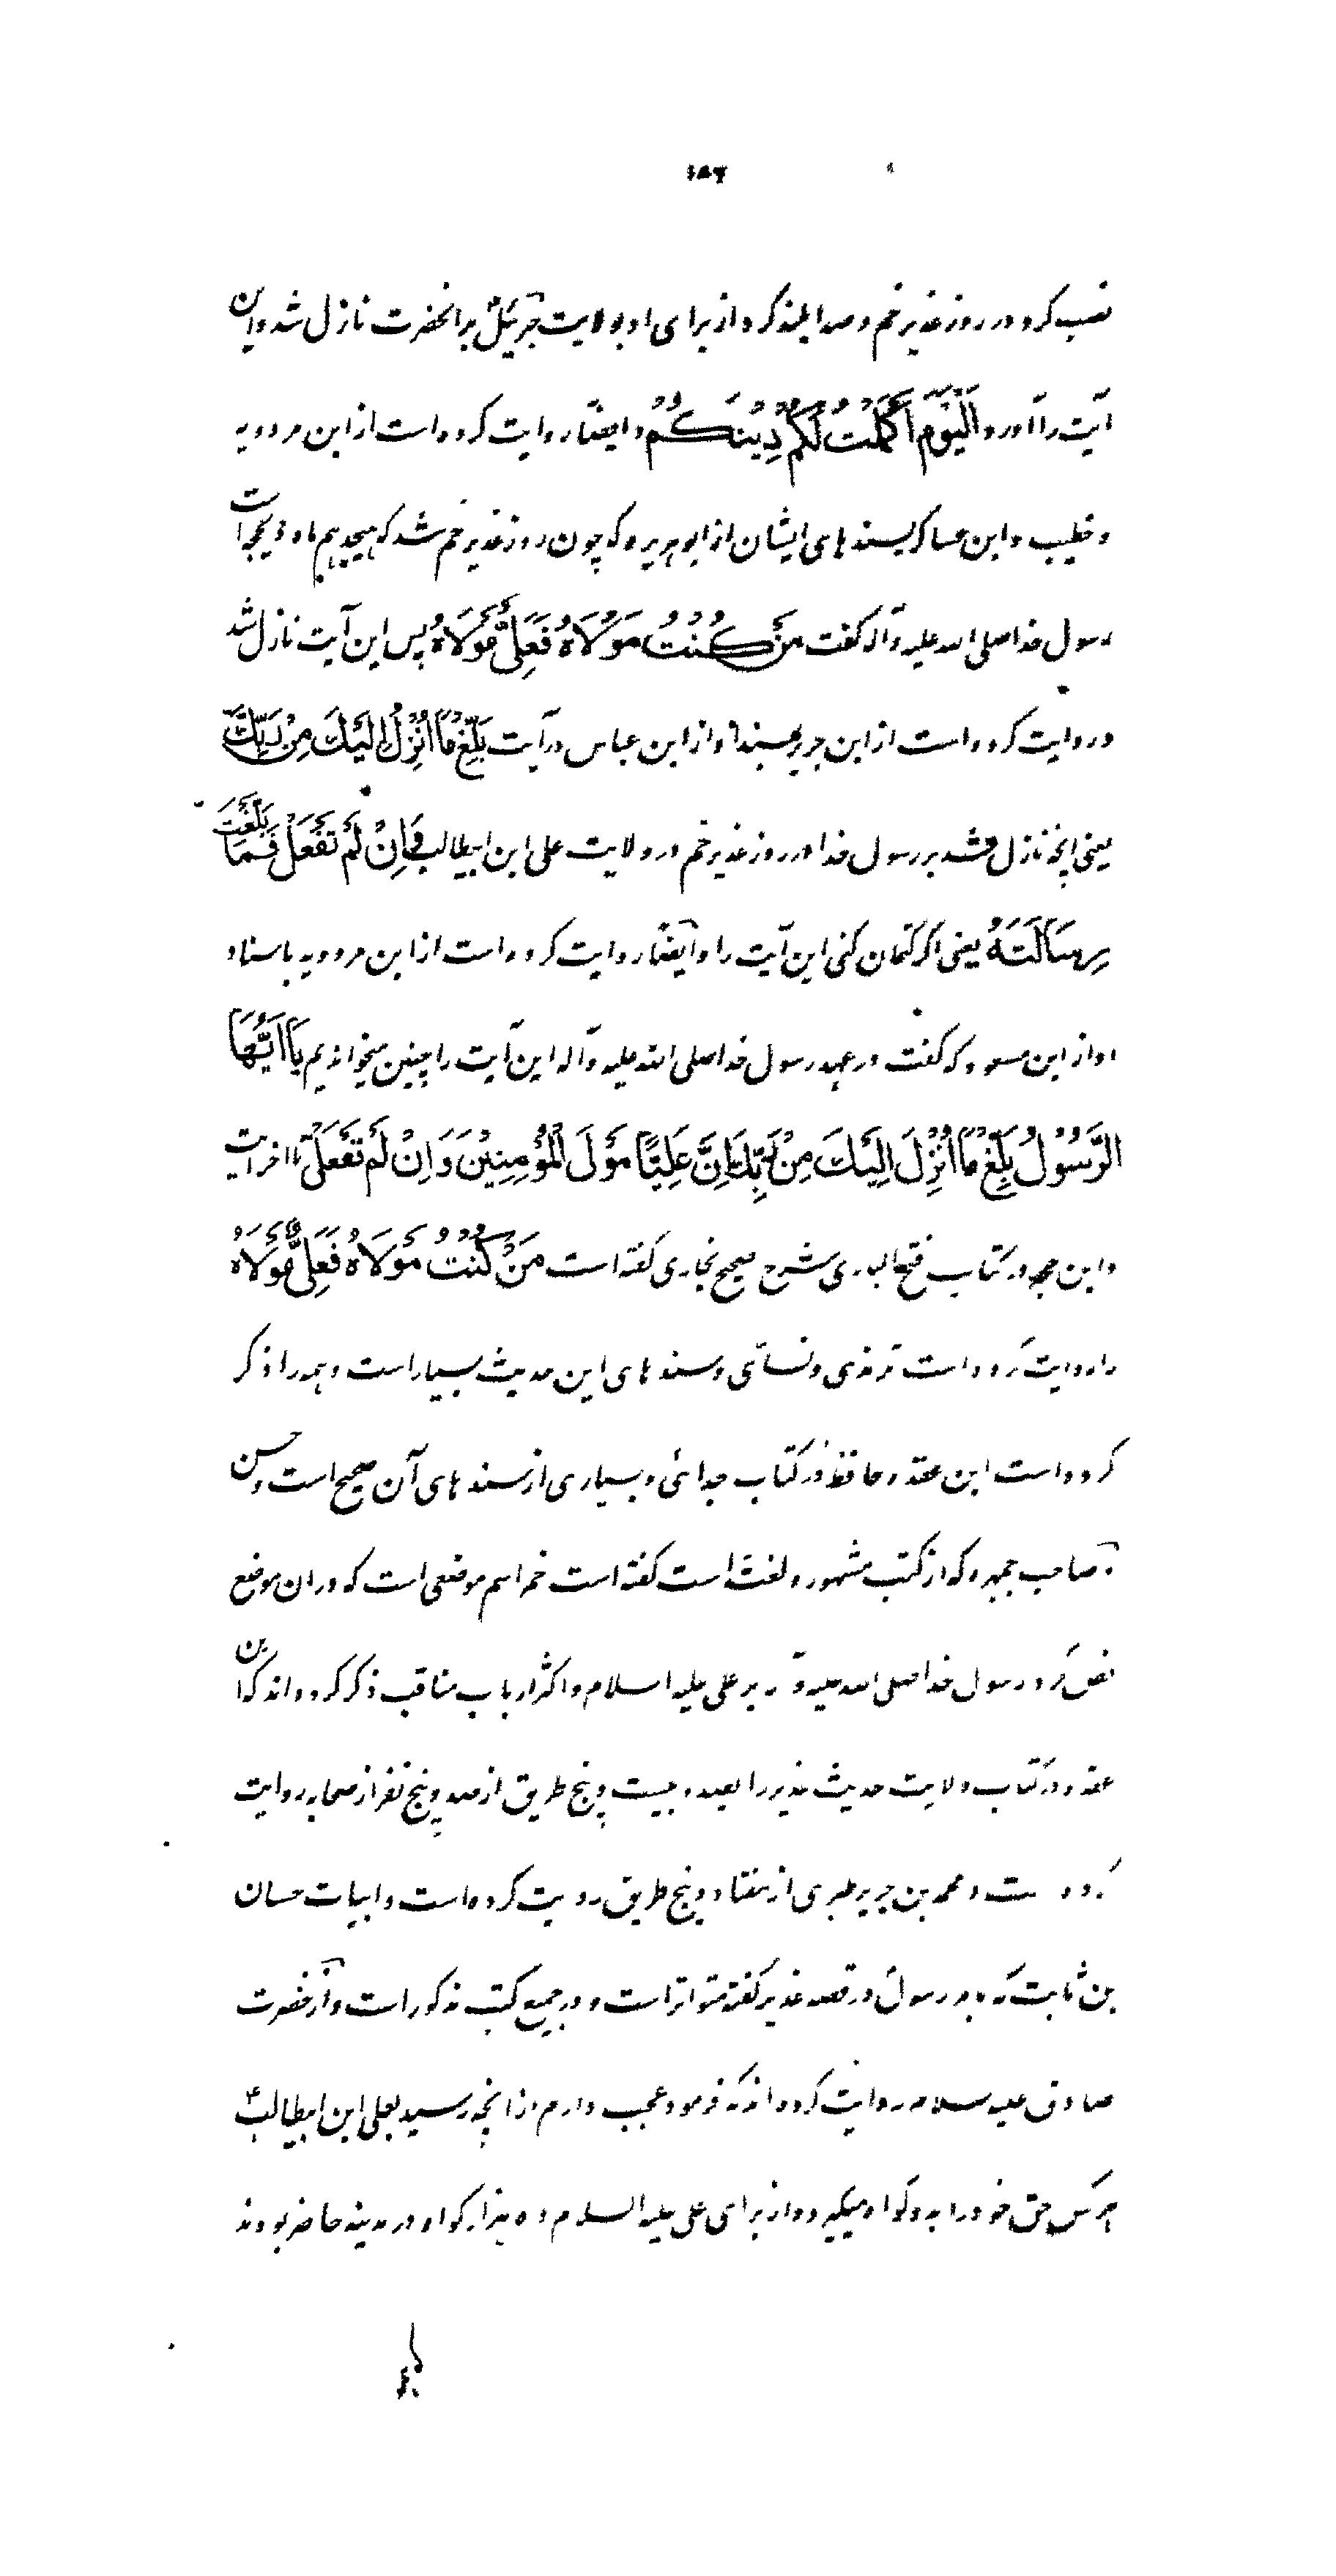 ۱۵۳
نصب کرد در روز غدیر خم و صدا بلند کرد از برای او بولایت جبرئیل بر آنحضرت نازل شد و این
آیت را آورد اَلْیَوْمَ اَکْمَلْتُ لَکُمْ دِیْنَکُمْ و ایضًا روایت کرده است از ابن مردویه
و خطیب و ابن عساکر بسندهای ایشان از ابو هریره که چون روز غدیر خم شد که هیجدهم ماه ذیحجه است
رسول خدا صلی الله علیه و آله گفت مَنْ کُنْتُ مَوْلَاهُ فَعَلِیٌّ مَوْلَاهُ پس این آیت نازل شد
و روایت کرده است از ابن جریر بسند او از ابن عباس در آیت بَلِّغْ مَا اُنْزِلَ اِلَیْكَ مِنْ رَبِّكَ
یعنی آنچه نازل شد بر رسول خدا در روز غدیر خم در ولایت علی ابن ابیطالب فَاِنْ لَمْ تَفْعَلْ فَمَا بَلَّغْتَ
رِسَالَتَهُ یعنی اگر کتمان کنی این آیت را و ایضًا روایت کرده است از ابن مردویه باسناد
او از ابن مسعود که گفت در عهد رسول خدا صلی الله علیه و آله این آیت را چنین میخواندیم یَا اَیُّهَا
الرَّسُوْلُ بَلِّغْ مَا اُنْزِلَ اِلَیْكَ مِنْ رَبِّكَ اِنَّ عَلِیًّا مَوْلَی الْمُؤْمِنِیْنَ وَ اِنْ لَمْ تَفْعَلْ تا آخر آیت
و ابن حجر در کتاب فتح الباری شرح صحیح بخاری گفته است مَنْ کُنْتُ مَوْلَاهُ فَعَلِیٌّ مَوْلَاهُ
را روایت کرده است ترمذی و نسائی و سندهای این حدیث بسیار است و همه را ذکر
کرده است ابن عقده حافظ در کتاب جدائی و بسیاری از سندهای آن صحیح است و حسن
و صاحب جمهره که از کتب مشهوره لغت است گفته است خم اسم موضعی است که در ان موضع
نص کرد رسول خدا صلی الله علیه و آله بر علی علیه السلام و اکثر ارباب مناقب ذکر کرده اند که ابن
عقده در کتاب ولایت حدیث غدیر را بصد و بیست و پنج طریق از صد و پنج نفر از صحابه روایت
کرده است و محمد بن جریر طبری از هفتاد و پنج طریق روایت کرده است و ابیات حسان
بن ثابت که بامر رسول در قصه غدیر گفته متواتر است و در جمیع کتب مذکور است و از حضرت
صادق علیه السلام روایت کرده اند که فرمود عجب دارم از آنچه رسید بعلی ابن ابیطالب
هر کس حق خود را بدو گواه میگیرد و از برای علی علیه السلام ده هزار گواه در مدینه حاضر بودند